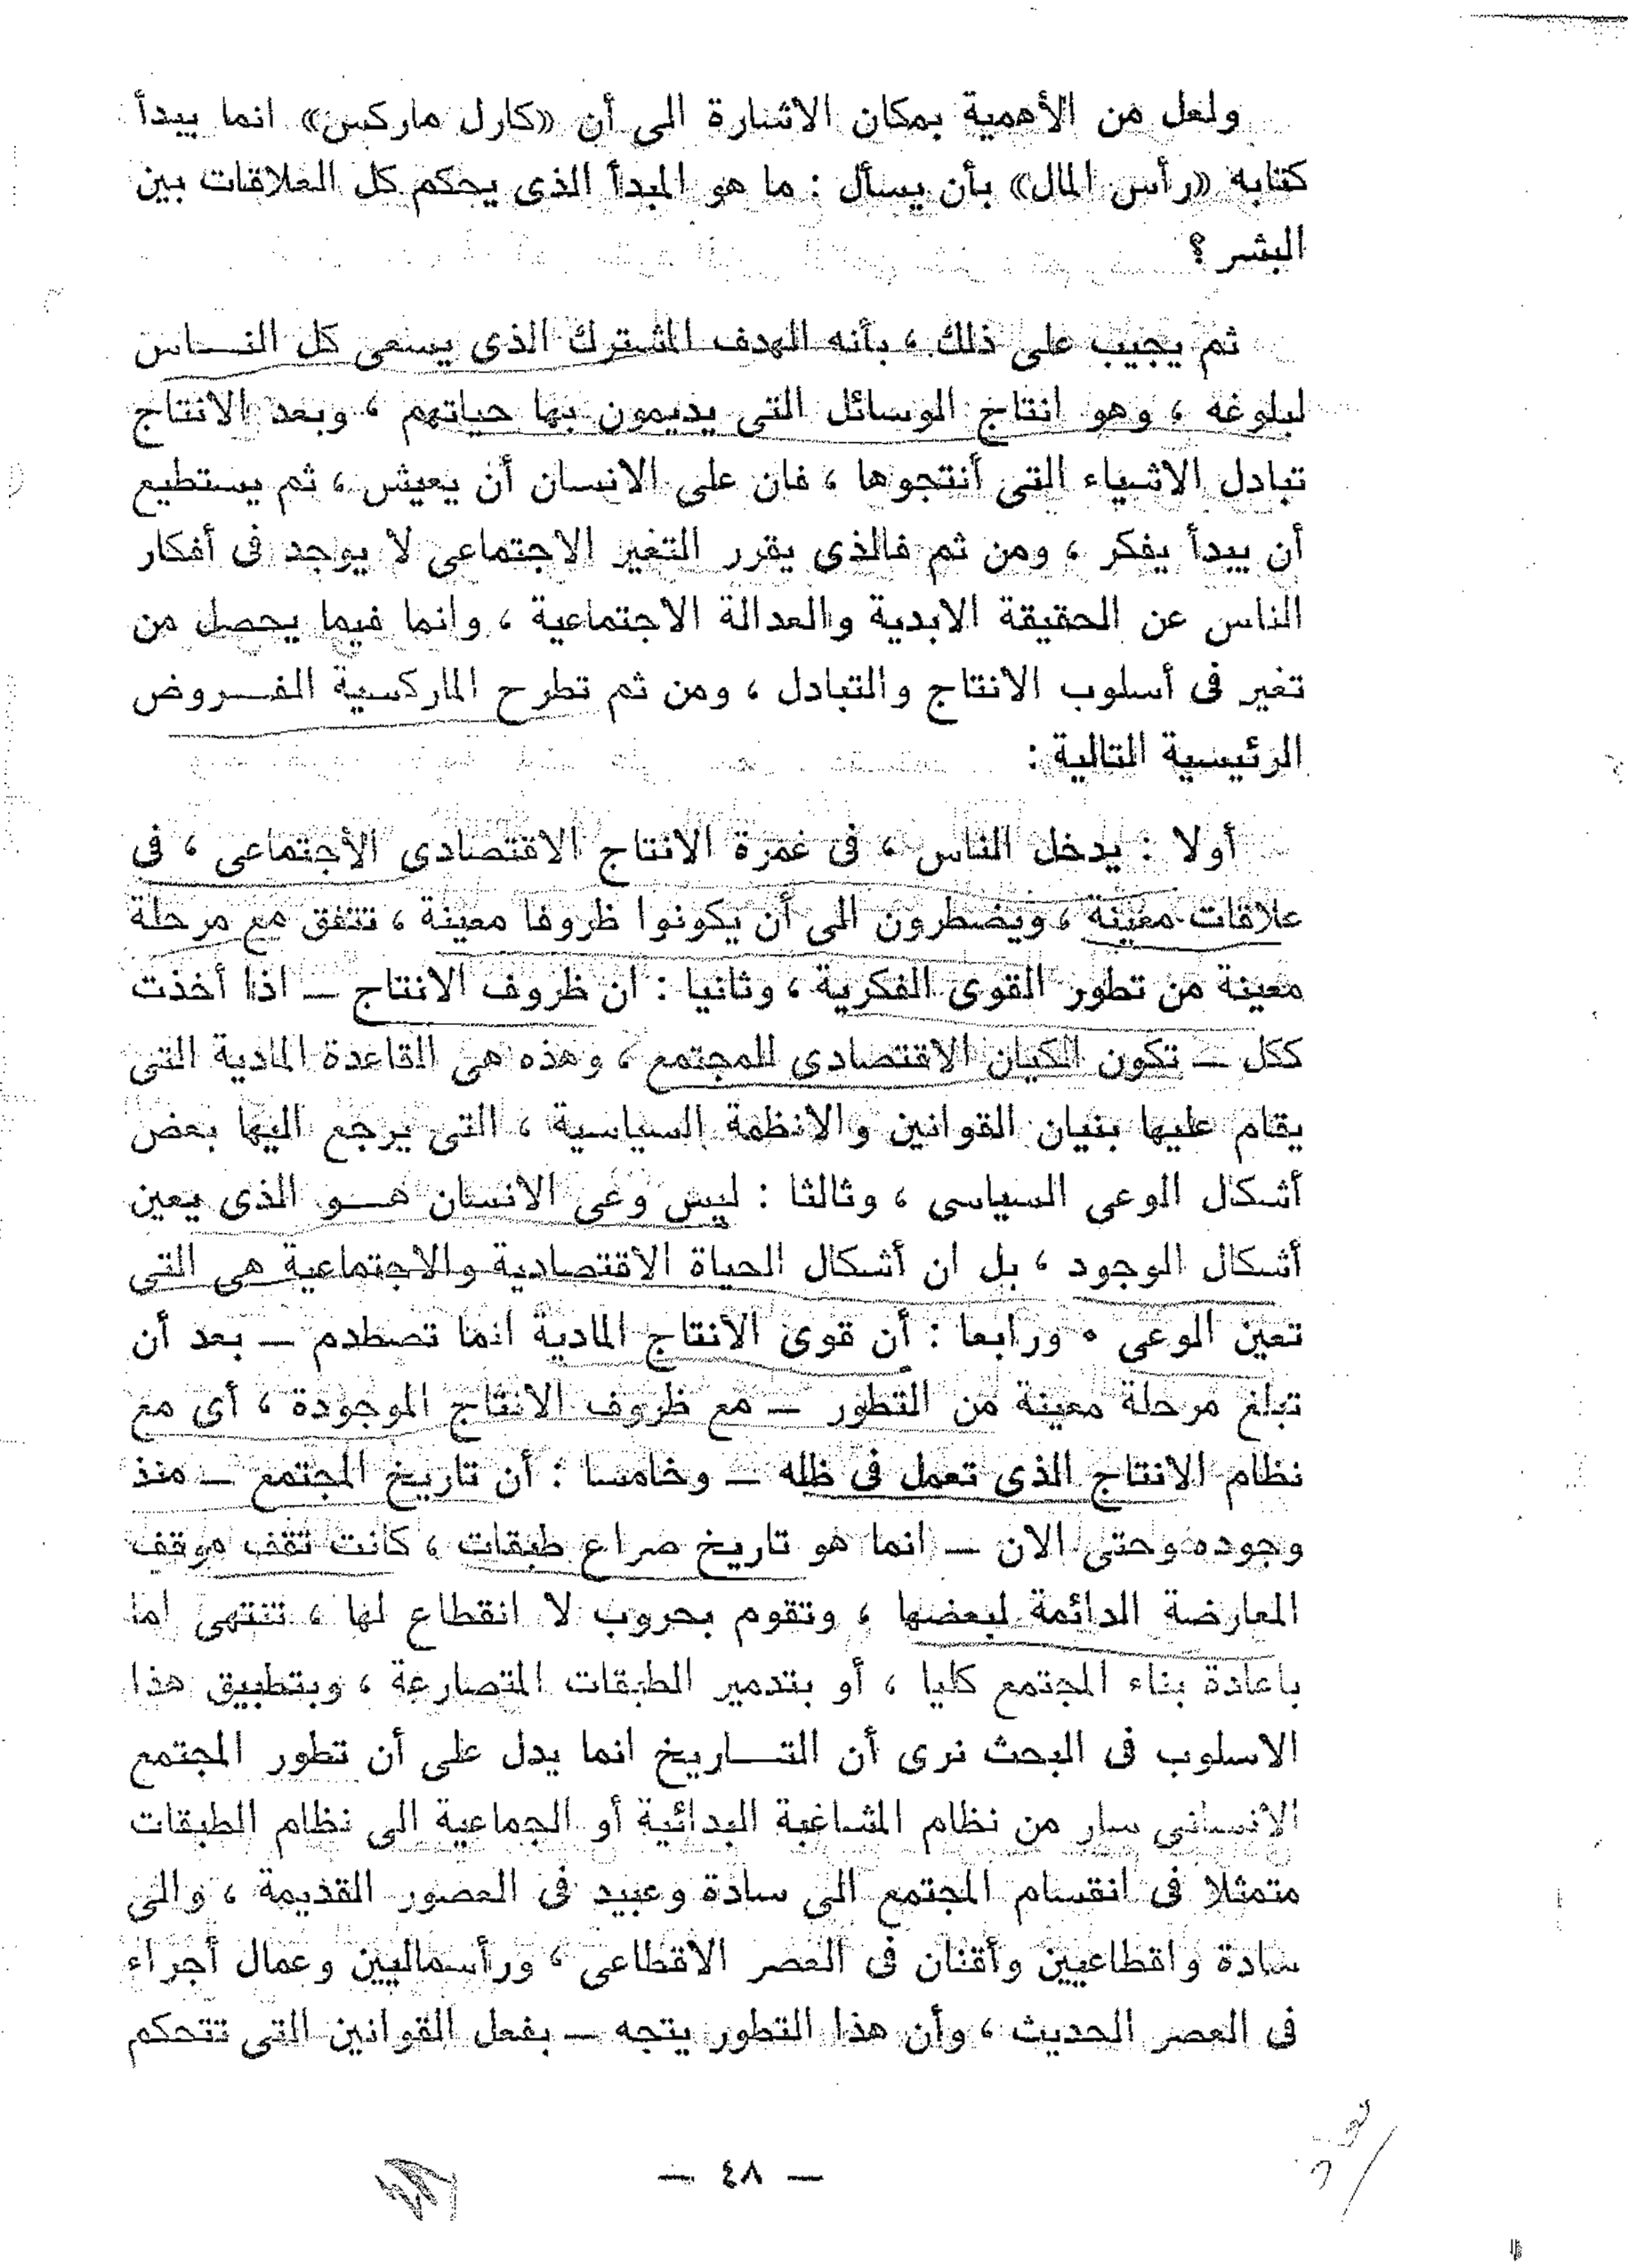 ولعل من الأهمية بمكان الاشارة الى أن «كارل ماركس» انما يبدأ
كتابه «رأس المال» بأن يسأل : ما هو المبدأ الذى يحكم كل العلاقات بين
البشر ؟
ثم يجيب على ذلك ، بأنه الهدف المشترك الذى يسعى كل النـــاس
لبلوغه ، وهو انتاج الوسائل التى يديمون بها حياتهم ، وبعد الانتاج
تبادل الاشياء التى أنتجوها ، فان على الانسان أن يعيش ، ثم يستطيع
أن يبدأ يفكر ، ومن ثم فالذى يقرر التغير الاجتماعى لا يوجد فى أفكار
الناس عن الحقيقة الابدية والعدالة الاجتماعية ، وانما فيما يحصل من
تغير فى أسلوب الانتاج والتبادل ، ومن ثم تطرح الماركسية الفـــروض
الرئيسية التالية :
أولا : يدخل الناس ، فى غمرة الانتاج الاقتصادى الأجتماعى ، فى
علاقات معينة ، ويضطرون الى أن يكونوا ظروفا معينة ، تتفق مع مرحلة
معينة من تطور القوى الفكرية ، وثانيا : ان ظروف الانتاج — اذا أخذت
ككل — تكون الكيان الاقتصادى للمجتمع ، وهذه هى القاعدة المادية التى
يقام عليها بنيان القوانين والانظمة السياسية ، التى يرجع اليها بعض
أشكال الوعى السياسى ، وثالثا : ليس وعى الانسان هـــو الذى يعين
أشكال الوجود ، بل ان أشكال الحياة الاقتصادية والاجتماعية هى التى
تعين الوعى ٠ ورابعا : أن قوى الانتاج المادية انما تصطدم — بعد أن
تبلغ مرحلة معينة من التطور — مع ظروف الانتاج الموجودة ، أى مع
نظام الانتاج الذى تعمل فى ظله — وخامسا : أن تاريخ المجتمع — منذ
وجوده وحتى الان — انما هو تاريخ صراع طبقات ، كانت تقف موقف
المعارضة الدائمة لبعضها ، وتقوم بحروب لا انقطاع لها ، تنتهى اما
باعادة بناء المجتمع كليا ، أو بتدمير الطبقات المتصارعة ، وبتطبيق هذا
الاسلوب فى البحث نرى أن التـــاريخ انما يدل على أن تطور المجتمع
الانسانى سار من نظام المشاغبة البدائية أو الجماعية الى نظام الطبقات
متمثلا فى انقسام المجتمع الى سادة وعبيد فى العصور القديمة ، والى
سادة واقطاعيين وأقنان فى العصر الاقطاعى ، ورأسماليين وعمال أجراء
فى العصر الحديث ، وأن هذا التطور يتجه — بفعل القوانين التى تتحكم
— ٤٨ —